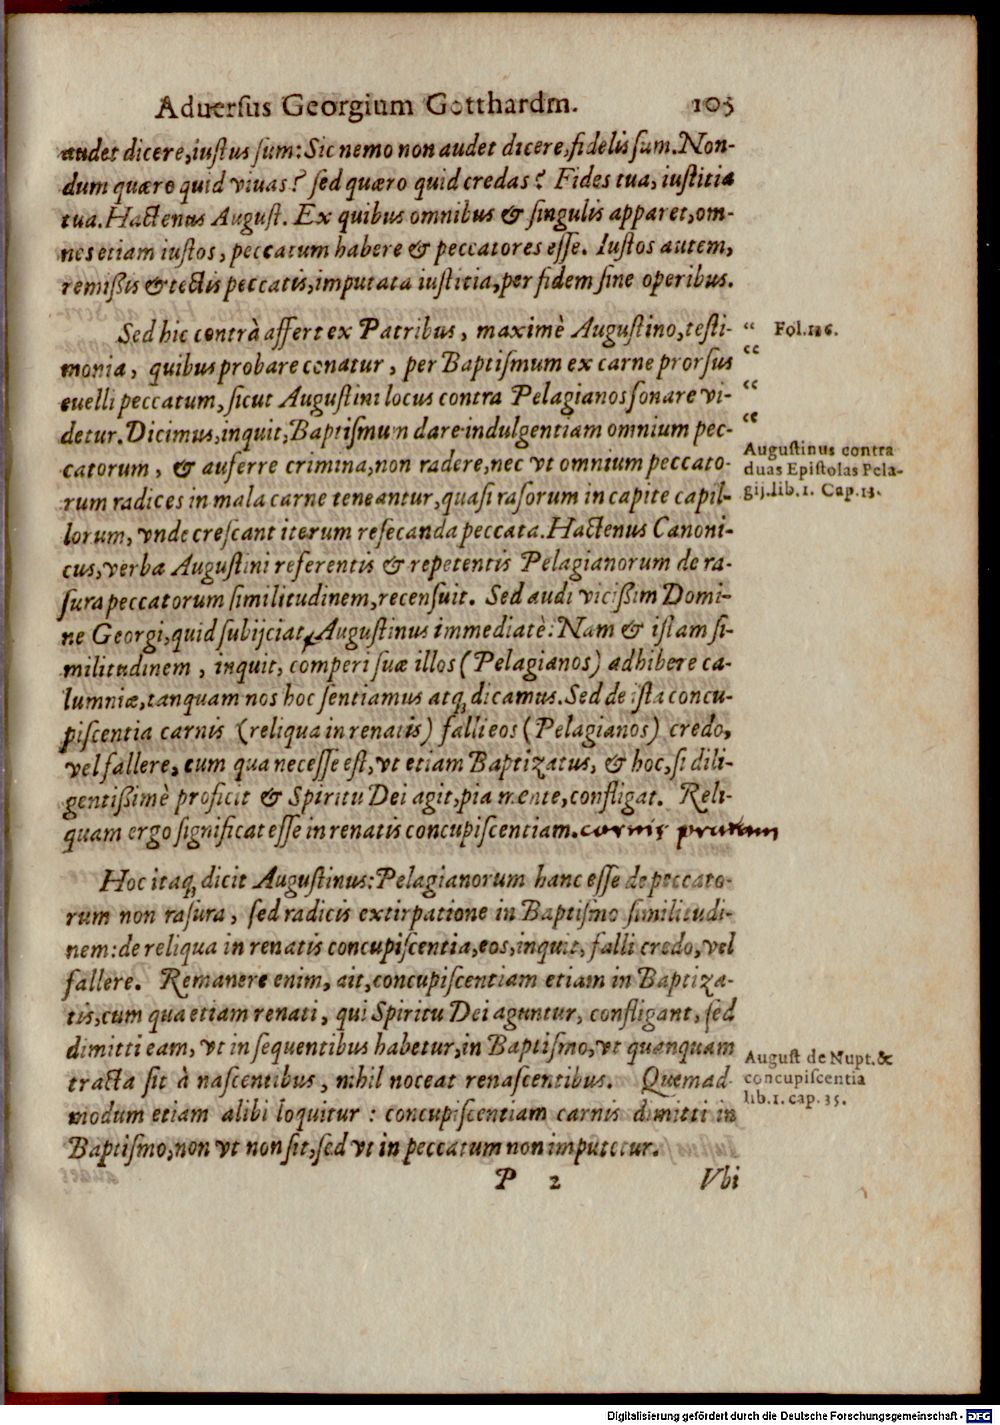 Aduersus Georgium Gotthardm. 105
audet dicere, iustus sum: Sic nemo non audet dicere, fidelis sum. Non-
dum quæro quid viuas? sed quæro quid credas? Fides tua, iustitia
tua. Hactenus August. Ex quibus omnibus & singulis apparet, om-
nes etiam iustos, peccatum habere & peccatores esse. Iustos autem,
remißis & tectis peccatis, imputata iustitia, per fidem sine operibus.
Sed hic contrà affert ex Patribus, maximè Augustino, testi- “ Fol. 116.
monia, quibus probare conatur, per Baptismum ex carne prorsus “
euelli peccatum, sicut Augustini locus contra Pelagianos sonare vi- “
detur. Dicimus, inquit, Baptismum dare indulgentiam omnium pec- “
catorum, & auferre crimina, non radere, nec vt omnium peccato-
rum radices in mala carne teneantur, quasi rasorum in capite capil-
Augustinus contra
duas Epistolas Pela-
gij. lib. 1. Cap. 13.
lorum, vnde crescant iterum resecanda peccata. Hactenus Canoni-
cus, verba Augustini referentis & repetentis Pelagianorum de ra-
sura peccatorum similitudinem, recensuit. Sed audi vicißim Domi-
ne Georgi, quid subijciat Augustinus immediatè: Nam & istam si-
militudinem, inquit, comperi suæ illos (Pelagianos) adhibere ca-
lumniæ, tanquam nos hoc sentiamus atq; dicamus. Sed de ista concu-
piscentia carnis (reliqua in renatis) falli eos (Pelagianos) credo,
vel fallere, cum qua necesse est, vt etiam Baptizatus, & hoc, si dili-
gentißimè proficit & Spiritu Dei agit, pia mente, confligat. Reli-
quam ergo significat esse in renatis concupiscentiam. carnis prauam
Hoc itaq; dicit Augustinus: Pelagianorum hanc esse de peccato-
rum non rasura, sed radicis extirpatione in Baptismo similitudi-
nem: de reliqua in renatis concupiscentia, eos, inquit, falli credo, vel
fallere. Remanere enim, ait, concupiscentiam etiam in Baptiza-
tis, cum qua etiam renati, qui Spiritu Dei aguntur, confligant, sed
dimitti eam, vt in sequentibus habetur, in Baptismo, vt quanquam
tracta sit à nascentibus, nihil noceat renascentibus. Quemad-
modum etiam alibi loquitur: concupiscentiam carnis dimitti in
Baptismo, non vt non sit, sed vt in peccatum non imputetur.
August de Nupt. &
concupiscentia
lib. 1. cap. 35.
P 2 Vbi
Digitalisierung gefördert durch die Deutsche Forschungsgemeinschaft - DFG